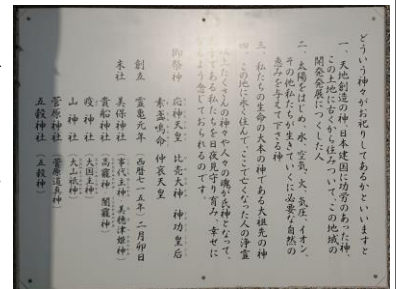 どういう神々がお祀りしてあるかといいますと
一、天地創造の神、日本建国に功労のあった神、
この土地に古くから住みついて、この地域の
開発発展につくした人
二、太陽をはじめ、水、空気、火、気圧、イオン、
その他私たちが生きていくに必要な自然の
恵みを与えて下さる神
三、私たちの生命の大本の神である大祖先の神
四、この地に永く住んで、ここで亡くなった人の浄霊
以上たくさんの神々や人々の魂が氏神となって、
である私たちを日夜見守り育み、幸せに
なるよう念じておられるのです。
御祭神 応神天皇 比売大神 神功皇后
素盞嗚命 仲哀天皇
創立 霊亀元年（西暦七一五年）二月卯日
末社 美保神社（事代主神 美穂津姫神）
貴船神社（高龗神 闇龗神）
疫神社（大国主神）
山神社（大山祇神）
菅原神社（菅原道真神）
五穀神社（五穀神）